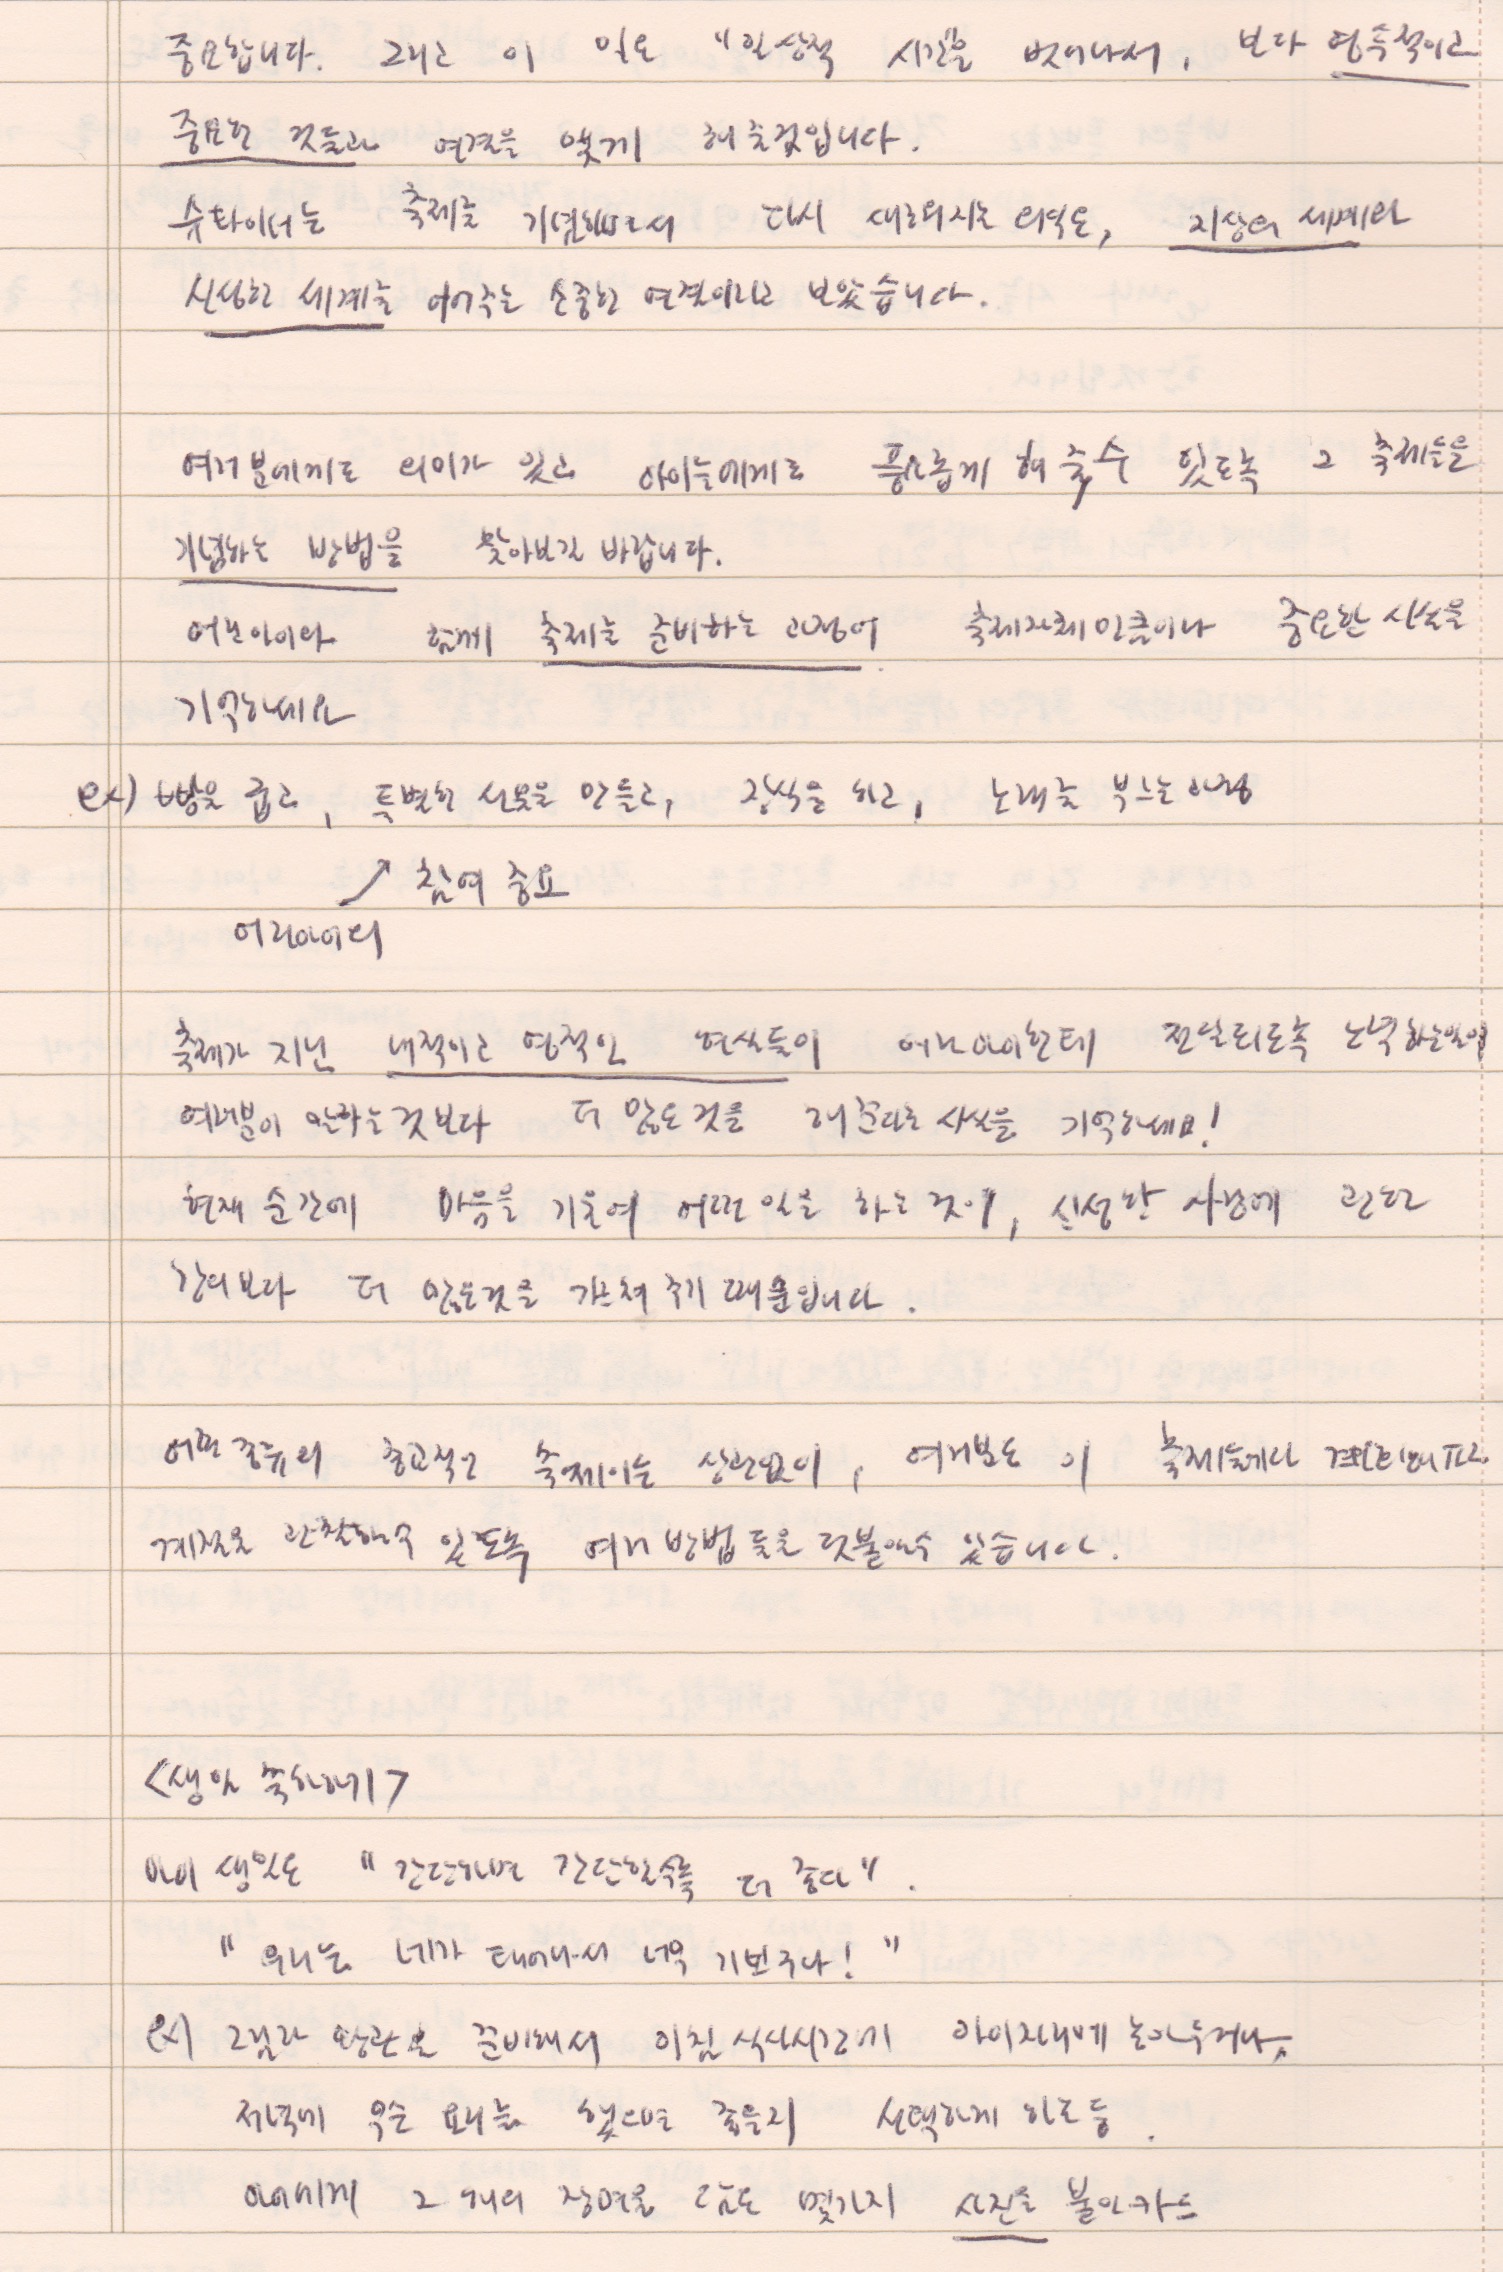 중요합니다. 그리고 이 일은 "일상적 시간을 벗어나서, 보다 영속적이고
중요한 것들과 연결을 맺게 해줄것입니다.
슈타이너는 축제를 기념함으로서 다시 새로워지는 의식은, 지상의 세계와
신성한 세계를 이어주는 소중한 연결이라고 보았습니다.
여러분에게도 의미가 있고 아이들에게도 풍요롭게 해 줄 수 있도록 그 축제들을
기념하는 방법을 찾아보길 바랍니다.
어린아이와 함께 축제를 준비하는 과정이 축제자체만큼이나 중요한 사실을
기억하세요
ex) 빵을 굽고, 특별한 선물을 만들고, 장식을 하고, 노래를 부르는 과정
↗ 참여 중요
어린아이의
축제가 지닌 내적이고 영적인 현실들이 어린아이한테 전달되도록 노력하는일이
여러분이 말하는것보다 더 많은 것을 해준다는 사실을 기억하세요!
현재 순간에 마음을 기울여 어떤 일을 하는 것이, 신성한 사랑에 관한
강의보다 더 많은것을 가르쳐 주기 때문입니다.
어떤 종류의 종교적인 축제이든 상관없이, 여러분은 이 축제들에다
계절을 관찰할수 있도록 여러 방법들을 덧붙일수 있습니다.
<생일 축하하기>
아이 생일은 "간단하면 간단할수록 더 좋다".
"우리는 네가 태어나서 너무 기쁘구나!"
ex) 그림과 왕관을 준비해서 아침 식사시간에 아이자리에 놓아두거나,
저녁에 무슨 요리를 했으면 좋을지 선택하게 하는 등.
아이에게 그 해의 장면을 담은 몇가지 사진을 붙인 카드